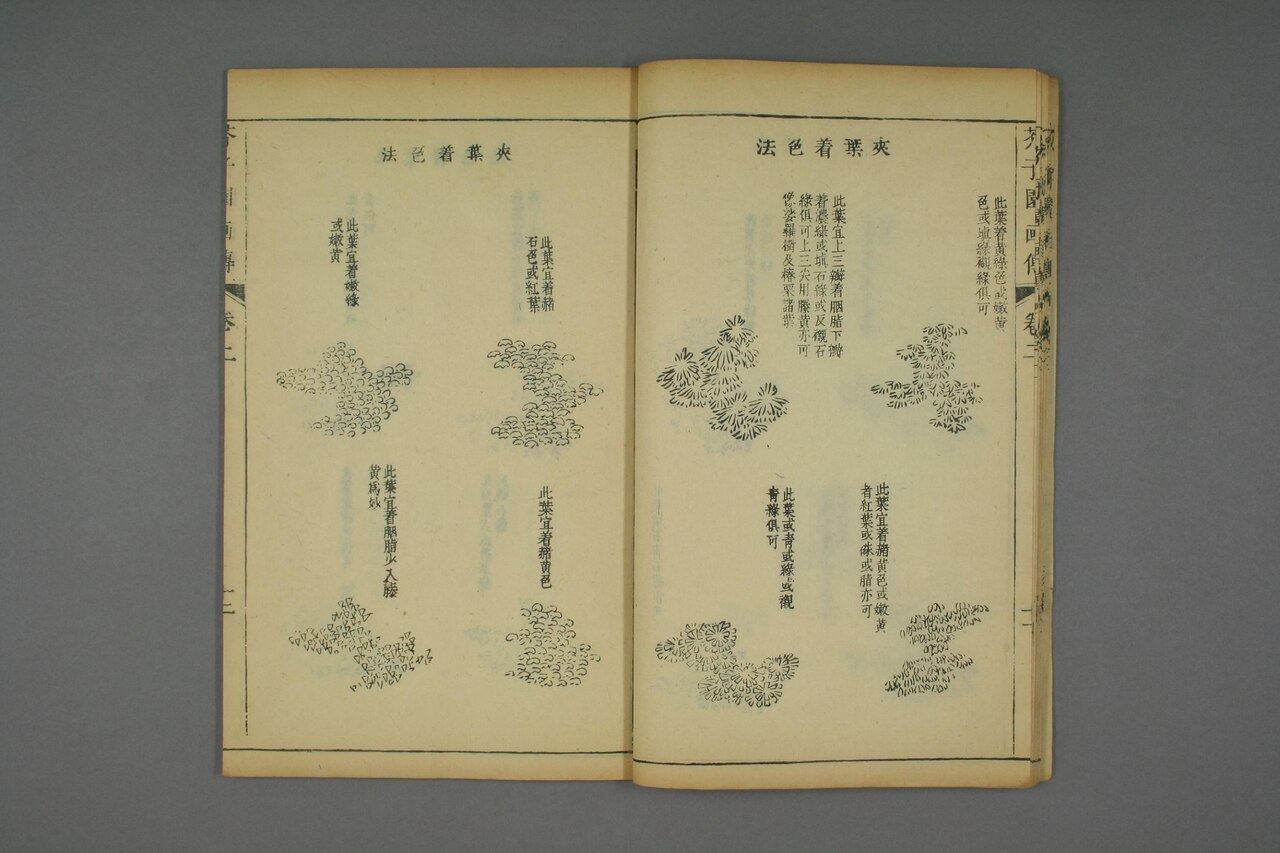 夾葉着色法
此葉着黄綠色或嫩黄
色或填綠襯綠俱可
此葉宜上三瓣着胭脂下瓣
着濃綠或填石綠或反襯石
綠俱可上三尖用滕黄亦可
像娑羅樹及椿栗諸葉
此葉宜着赭黄色或嫩黄
者紅葉或硃或脂亦可
此葉或青或綠或襯
青綠俱可
芥子園画傳
卷二
夾葉着色法
此葉宜着赭
石色或紅葉
此葉宜着嫩綠
或嫩黄
此葉宜着赭黄色
此葉宜着胭脂少入滕
黄爲妙
芥子園画傳
卷二